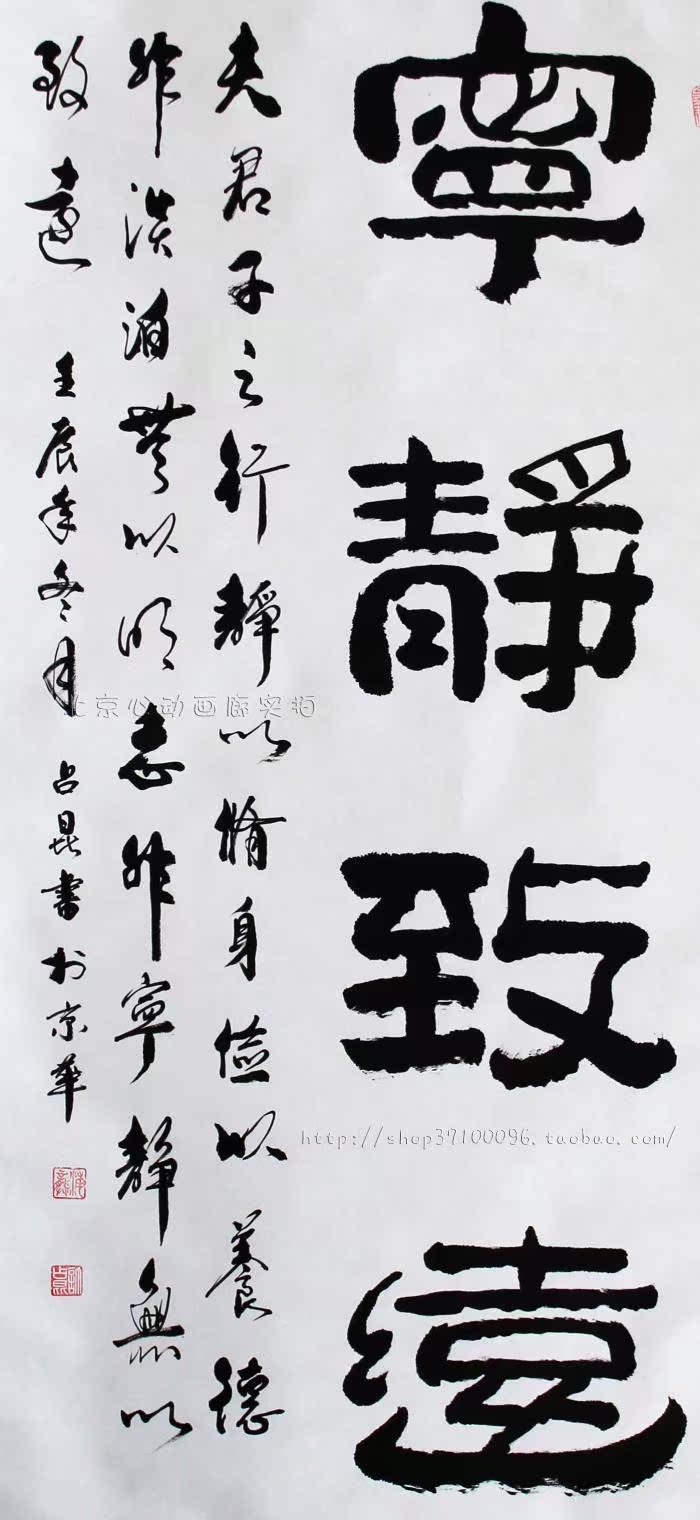 寧靜致遠
夫君子之行靜以脩身儉以養德
非淡泊無以明志非寧靜無以
致遠
壬辰年冬月占昆書於京華
北京心动画廊实拍
http://shop37100096.taobao.com/